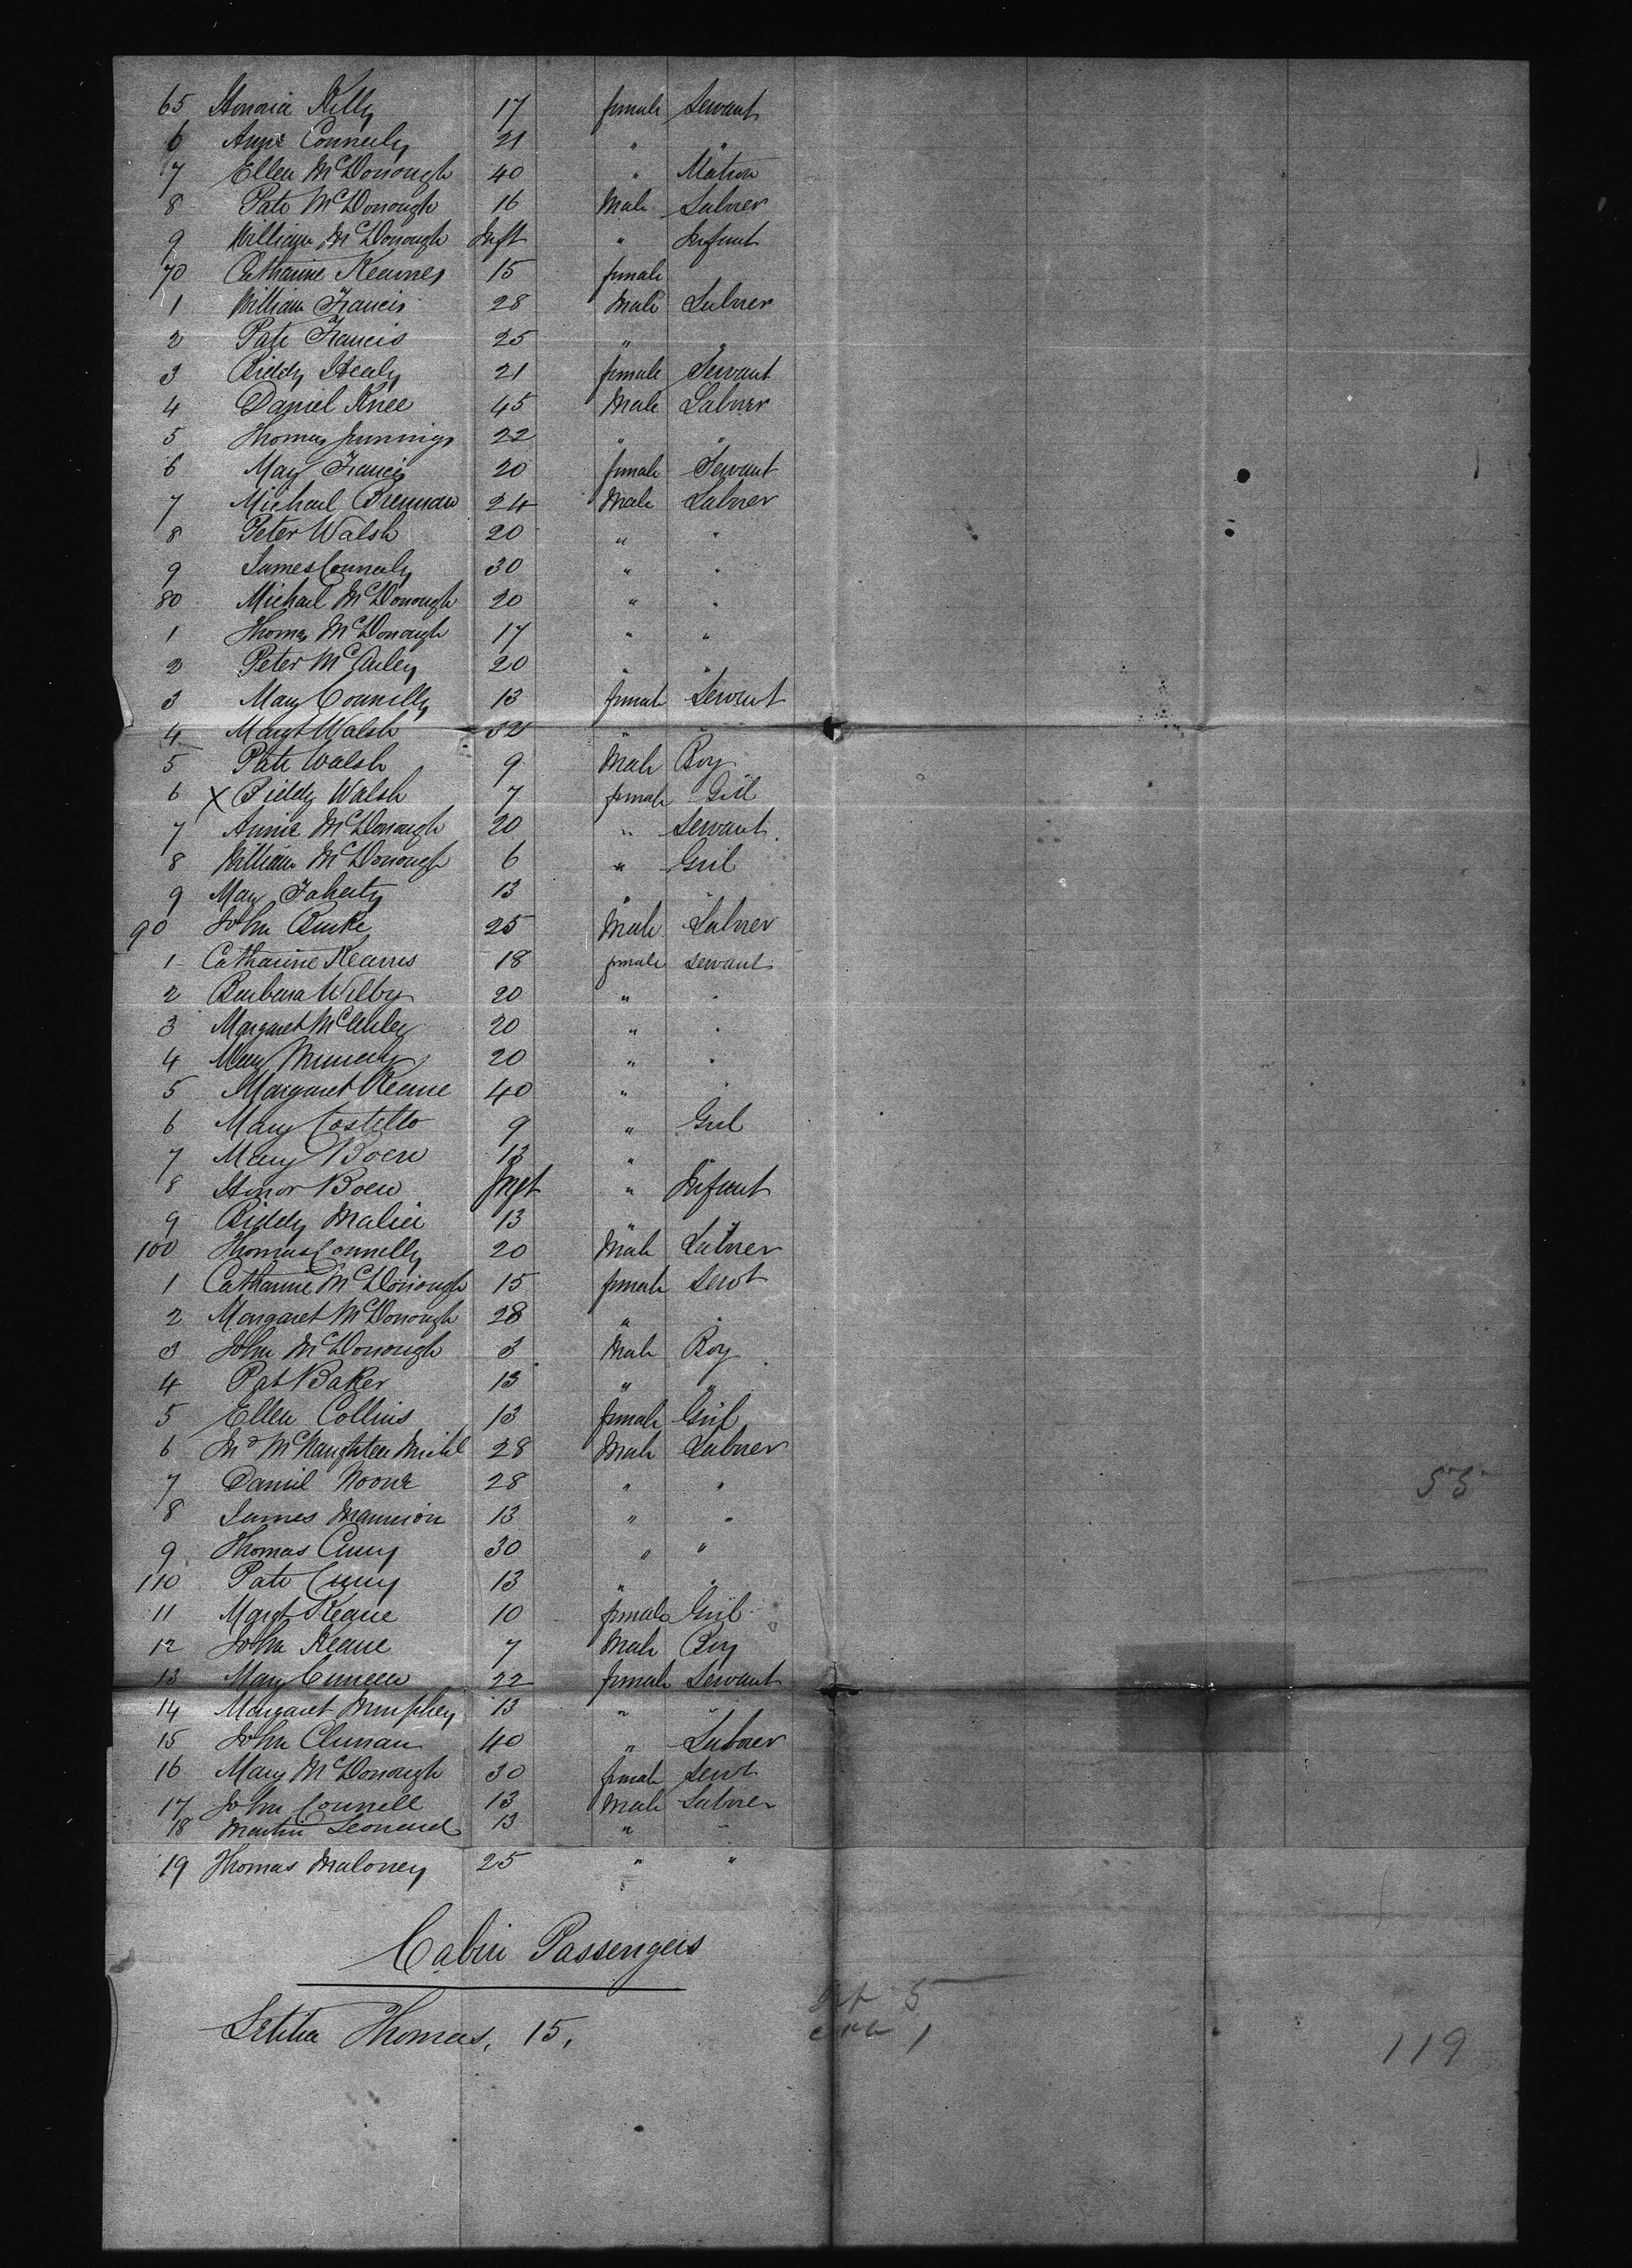 65 Honoria Kelly 17 female Servant
6 Anne Conneely 21 " "
7 Ellen McDonough 40 " Matron
8 Patk McDonough 16 Male Labrer
9 William McDonough Inft " Infant
70 Catharine Kearnes 15 female
1 William Francis 28 Male Labrer
2 Patk Francis 25 " "
3 Biddy Healy 21 female Servant
4 Daniel Knee 45 Male Labrer
5 Thomas Jennings 22 " "
6 May Francis 20 female Servant
7 Michael Brennan 24 Male Labrer
8 Peter Walsh 20 " "
9 James Conneely 30 " "
80 Michael McDonough 20 " "
1 Thomas McDonough 17 " "
2 Peter McAuley 20 " "
3 Mary Connelly 13 female Servant
4 Margt Walsh 32 " "
5 Patk Walsh 9 Male Boy
6 X Biddy Walsh 7 female Girl
7 Annie McDonough 20 " Servant
8 William McDonough 6 " Girl
9 Mary Faherty 13 " "
90 John Burke 25 Male Labrer
1 Catharine Kearns 18 female servant
2 Barbara Wilby 20 " "
3 Margaret McAuley 20 " "
4 Mary 20 " "
5 Margaret Keane 40 " "
6 Mary Costello 9 " Girl
7 Mary Boen 13 " "
8 Honor Boen Inft " Infant
9 Biddy Malia 13 " "
100 Thomas Connelly 20 Male Labrer
1 Catharine McDonough 15 female Servt
2 Margaret McDonough 28 " "
3 John McDonough 3 Male Boy
4 Pat Baker 13 " "
5 Ellen Collins 13 female Girl
6 McNaughten Michl 28 Male Labrer
7 Daniel Noone 28 " "
8 James Mannion 13 " "
9 Thomas Curry 30 " "
110 Patk Curry 13 " "
11 Margt Keane 10 female Girl
12 John Keane 7 Male Boy
13 Mary Cunneen 22 female Servant
14 Margaret Murphey 13 " "
15 John Clunan 40 " Labrer
16 Mary McDonough 30 female Servt
17 John Connell 13 Male Labrer
18 Martin Leonard 13 " "
19 Thomas Maloney 25 " "
55
Cabin Passengers
Letitia Thomas, 15,
5
1
119